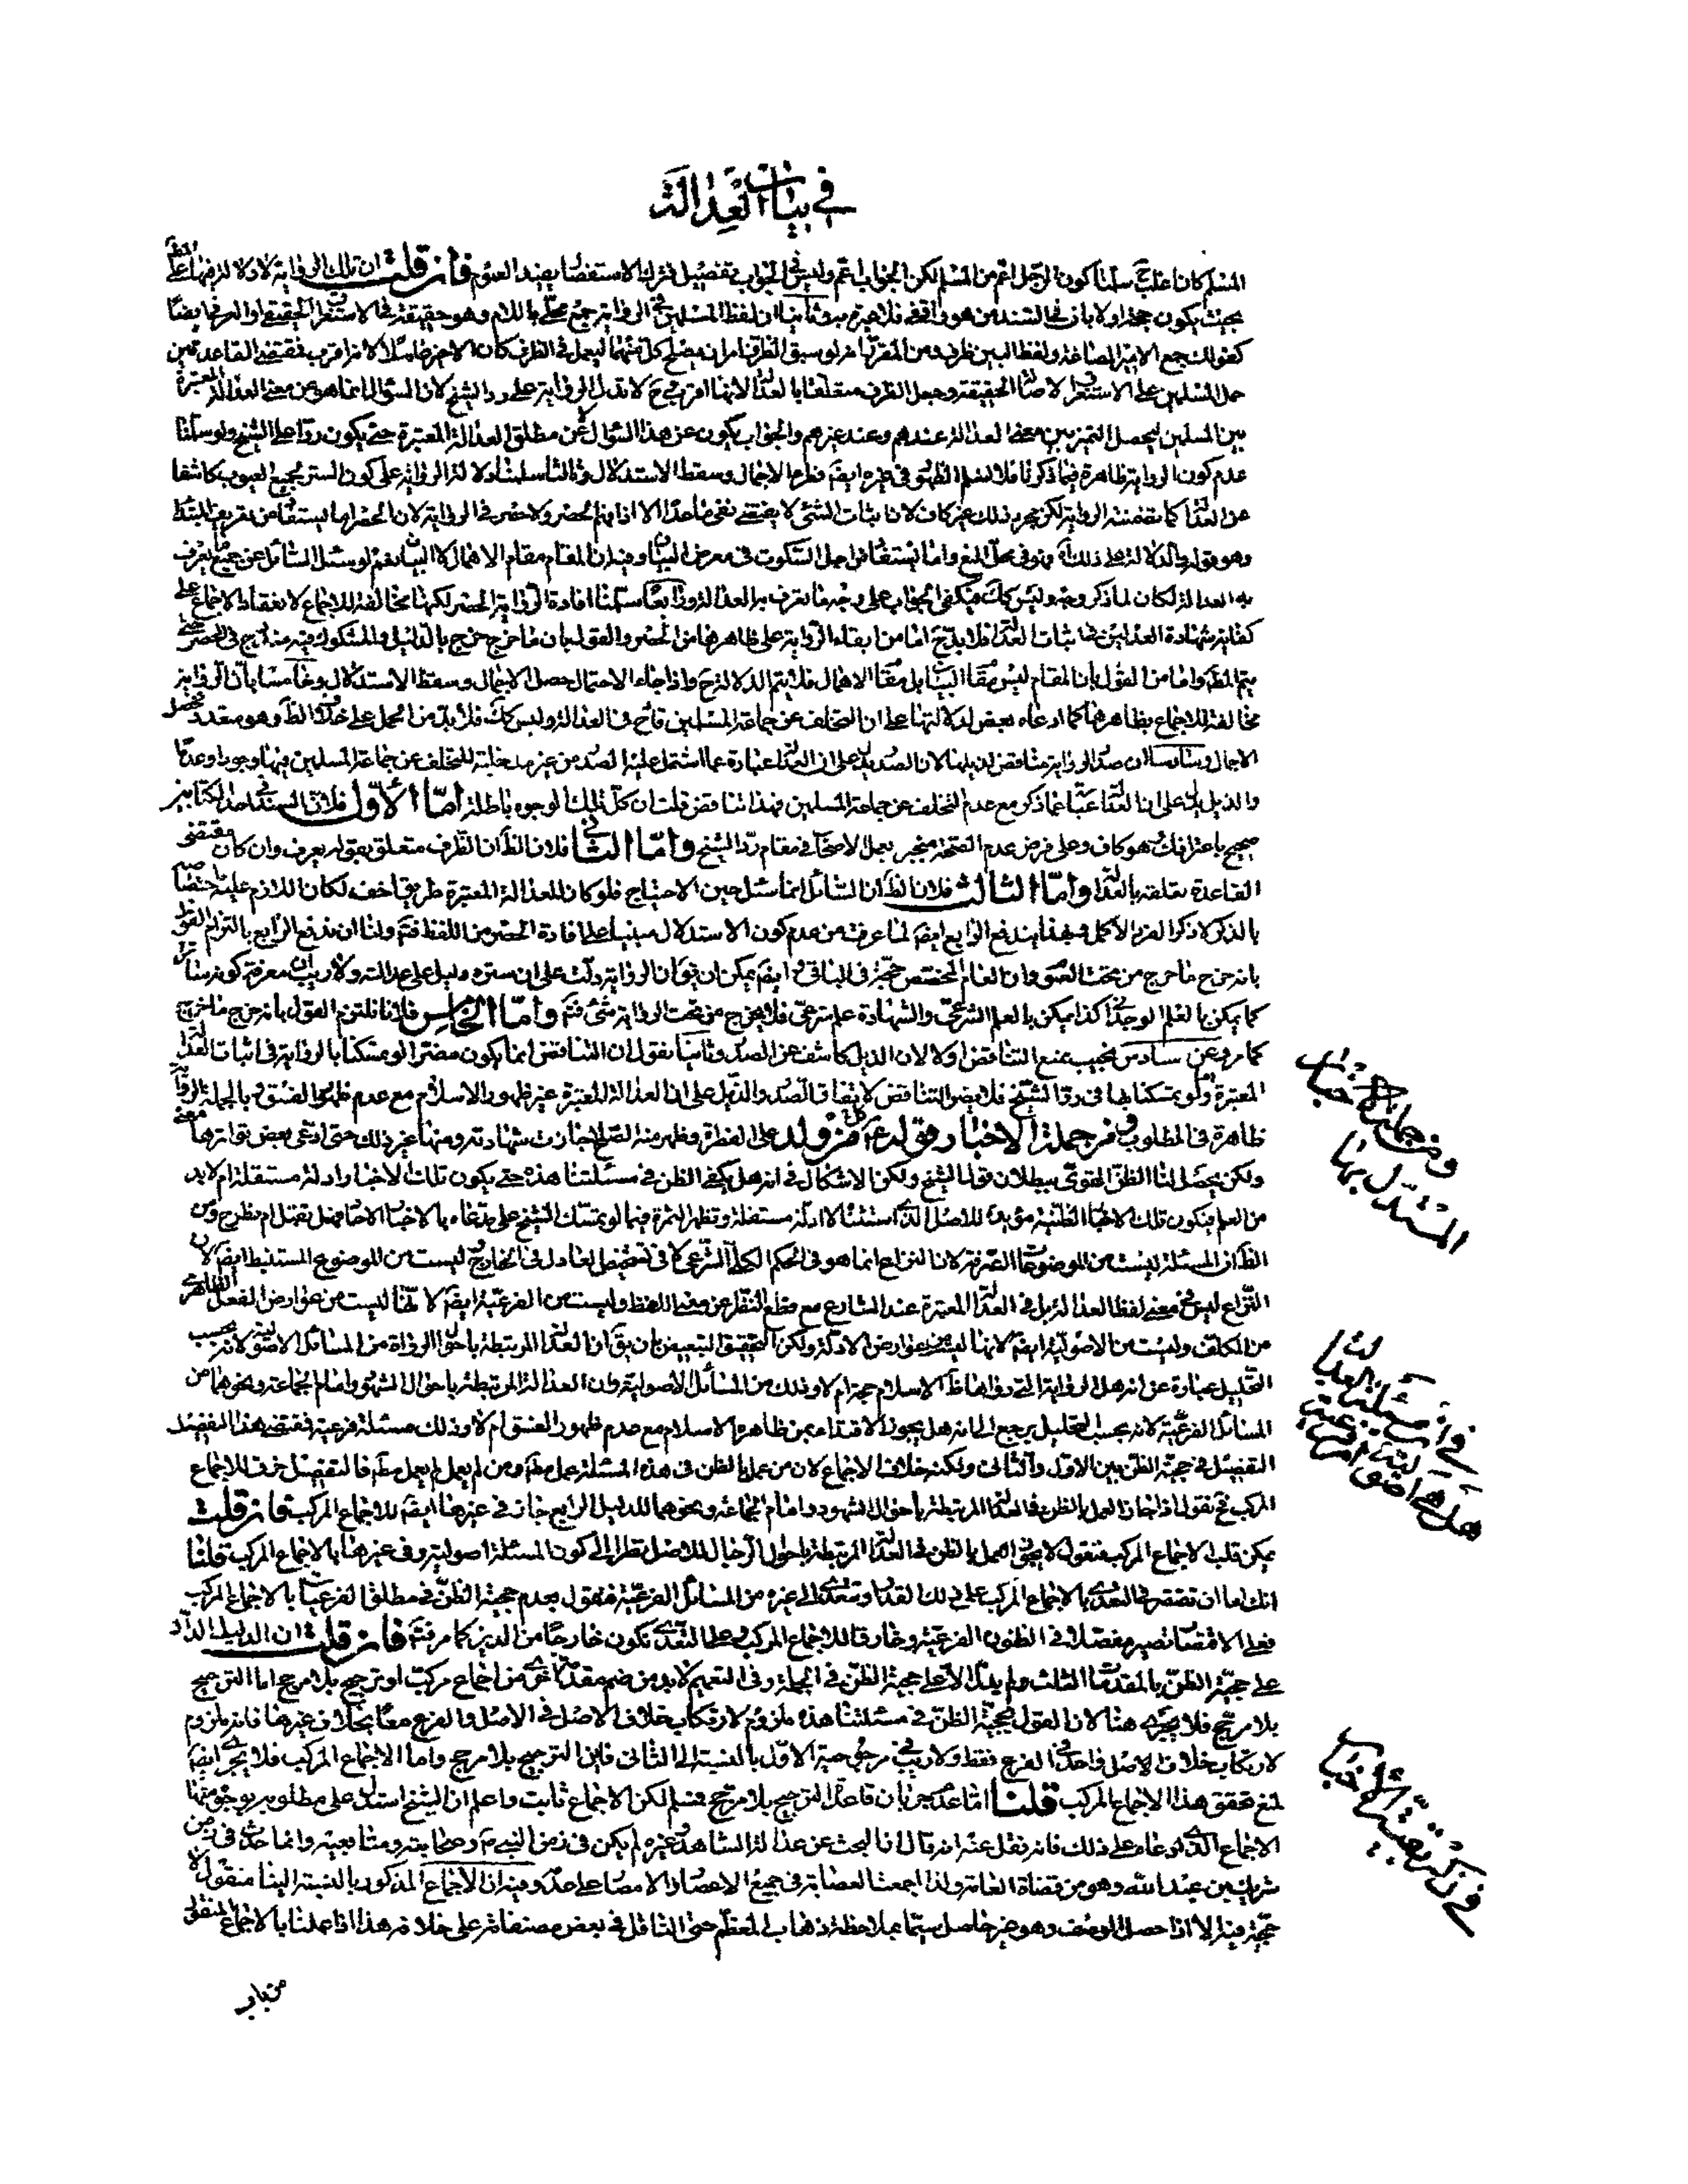 في بيان العدالة
المسلم كان اعتاب سلمنا كون الرجل اعم من المسلم لكن الجواب اعم وليس في الجواب تفصيل فترك الاستفصال يفيد العموم فان قلت ان تلك الرواية لا دلالة فيها على المط
بحيث يكون حجة اولا بان في السند من هو واقفي فلا عبرة به وثانيا ان لفظ المسلمين في الرواية جمع محلى باللام وهو حقيقة في الاستغراق الحقيقي او العرفي ايضا
كقولك جمع الامير الصاغة ولفظ البين ظرف ومن المقرر انه لو سبق الظرف امران يصلح كل منهما ليعمل في الظرف كان الاخير عاملا لانه اقرب فمقتضى القاعدتين
حمل المسلمين على الاستغراق لاصالة الحقيقة وجعل الظرف متعلقا بالعدالة لانها اقرب فح لا تدل الرواية على رد الشيخ لان السؤال انما هو عن معنى العدالة المعتبرة
بين المسلمين ليحصل التميز بين معنى العدالة عندهم وعند غيرهم والجواب يكون عن هذا السؤال لا عن مطلق العدالة المعتبرة حتى يكون ردا على الشيخ ولو سلمنا
عدم كون الرواية ظاهرة فيما ذكرنا فلا نسلم الظهور في غيره ايضا فطرء الاجمال وسقط الاستدلال وثالثا سلمنا دلالة الرواية على كون الستر لجميع العيوب كاشفا
عن العدالة كما تضمنته الرواية لكن مجرد ذلك غير كاف لان اثبات الشئ لا يقتضي نفي ما عداه الا اذا فهم الحصر ولا حصر في الرواية لان الحصر اما يستفاد من تعريف المبتدا
وهو قوله والدلالة على ذلك آه وهو في محل المنع واما يستفاد من اجل السكوت في معرض البيان وفيه ان المقام مقام الاهمال لا البيان نعم لو سئل السائل عن جميع ما يعرف
به العدالة لكان لما ذكر وجه وليس كك فيكفي الجواب على وجه ما يعرف به العدالة ورابعا سلمنا افادة الرواية الحصر لكنها مخالفة للاجماع لانعقاد الاجماع على
كفاية شهادة العدلين في اثبات العدالة فلا بد ح اما من ابقاء الرواية على ظاهرها من الحصر والقول بان ما خرج خرج بالدليل والمشكوك فيه مندرج في الحصر حتى
يتم المط واما من القول بان المقام ليس مقام البيان بل مقام الاهمال فلا يتم الدلالة ح واذا جاء الاحتمال حصل الاجمال وسقط الاستدلال وخامسا بان الرواية
مخالفة للاجماع بظاهرها كما ادعاه بعض لدلالتها على ان التخلف عن جماعة المسلمين قادح في العدالة وليس كك فلا بد من الحمل على خلاف الظ وهو متعدد فيحصل
الاجمال وسادسا ان صدر الرواية مناقض لذيلها لان الصدر يدل على ان العدالة عبارة عما اشتمل عليه الصدر من غير مدخلية للتخلف عن جماعة المسلمين فيها وجودا وعدما
والذيل يدل على ان العدالة عبارة عما ذكر مع عدم التخلف عن جماعة المسلمين فهذا تناقض قلت ان كل تلك الوجوه باطلة اما الاول فلان السند في احد الكتابين
صحيح باعترافك فهو كاف وعلى فرض عدم الصحة منجبر بعمل الاصحاب في مقام رد الشيخ واما الثاني فلان الظ ان الظرف متعلق بقوله يعرف وان كان مقتضى
القاعدة تعلقه بالعدالة واما الثالث فلان الظ ان السائل انما سئل حين الاحتياج فلو كان للعدالة المعتبرة طريق اخف لكان اللازم عليه اختصاصه
بالذكر لا ذكر الفرد الاكمل وبهذا يندفع الرابع ايضا لما عرفت من عدم كون الاستدلال مبنيا على افادة الحصر من اللفظ فتم ولنا ان ندفع الرابع بالتزام القول
بانه خرج ما خرج من تحت العموم وان العام المخصص حجة في الباقي وايضا يمكن ان يق ان الرواية دلت على ان ستره دليل على عدالته ولا ريب ان معرفة كونه ساترا
كما يمكن بالعلم الوجداني كذا يمكن بالعلم الشرعي والشهادة علم شرعي فلا يخرج من تحت الرواية شئ فتم واما الخامس فلانا نلتزم القول بانه خرج ما خرج
كما مر وعن السادس نجيب بمنع التناقض اولا لان الذيل كاشف عن الصدر وثانيا نقول ان التناقض انما يكون مضرا لو تمسكنا بالرواية في اثبات العدالة
المعتبرة ولو تمسكنا بها في رد الشيخ فلا يضر التناقض لاتفاق الصدر والذيل على ان العدالة المعتبرة غير ظهور الاسلام مع عدم ظهور الفسق وبالجملة الرواية
ظاهرة في المطلوب ومن جملة الاخبار قوله ع كل من ولد على الفطرة وظهر منه الصلاح جازت شهادته ومنها غير ذلك حتى ادعى بعض تواترها معنى
ولكن يحصل لنا الظن القوي ببطلان قول الشيخ ولكن الاشكال في انه هل يكفي الظن في مسئلتنا هذه حتى يكون تلك الاخبار ادلة مستقلة ام لا بد
من العلم فيكون تلك الاخبار الظنية مؤيدة للاصل الذي استثنا لا ادلة مستقلة وتظهر الثمرة فيما لو تمسك الشيخ على مدعاه بالاخبار الاحاد فهل تقبل ام تطرح ومن
الظ ان المسئلة ليست من الموضوعات الصرفة لان النزاع انما هو في الحكم الكلي الشرعي لا في تشخيص العادل في الخارج وليست من الموضوع المستنبط ايضا لان
النزاع ليس في معنى لفظ العدالة بل في العدالة المعتبرة عند الشارع مع قطع النظر عن معنى اللفظ وليست من الفرعية ايضا لانها ليست من عوارض الفعل الظاهري
من المكلف وليست من الاصولية ايضا لانها ليست من عوارض الادلة ولكن التحقيق التبعيض بان يق ان العدالة المرتبطة باحوال الرواة من المسائل الاصولية لانه بحسب
التحليل عبارة عن انه هل الرواية التي رواها ظاهر الاسلام حجة ام لا وذلك من المسائل الاصولية وان العدالة المرتبطة باحوال الشهود وامام الجماعة ونحوهما من
المسائل الفرعية لانه بحسب التحليل يرجع الى انه هل يجوز الاقتداء بمن ظاهره الاسلام مع عدم ظهور الفسق ام لا وذلك مسئلة فرعية فمقتضى هذا التفصيل
التفصيل في حجية الظن بين الاول والثاني ولكنه خلاف الاجماع لان من عمل بالظن في هذه المسئلة عمل مط ومن لم يعمل لم يعمل مط فالتفصيل خرق للاجماع
المركب فح نقول اذا جاز العمل بالظن في العدالة المرتبطة باحوال الشهود وامام الجماعة ونحوهما للدليل الرابع جاز في غيرها ايضا للاجماع المركب فان قلت
يمكن قلب الاجماع المركب فنقول لا يجوز العمل بالظن في العدالة المرتبطة باحوال الرجال للاصل نظرا الى كون المسئلة اصولية وفي غيرها بالاجماع المركب قلنا
انك اما ان تقتصر في التعدي بالاجماع المركب على تلك العدالة او تتعدى الى غيره من المسائل الفرعية فتقول بعدم حجية الظن في مطلق الفرعيات بالاجماع المركب
فعلى الاقتصار تصير مفصلا في الظنون الفرعية وخارقا للاجماع المركب وعلى التعدي تكون خارجا من الدين كما مر فتم فان قلت ان الدليل الدال
على حجية الظن بالمقدمات الثالث لم يدل الا على حجية الظن في الجملة وفي التعميم لا بد من ضم مقدمة اخرى من اجماع مركب او ترجيح بلا مرجح اما الترجيح
بلا مرجح فلا يجري هنا لان القول بحجية الظن في مسئلتنا هذه ملزوم لارتكاب خلاف الاصل في الاصل والفرع معا بخلاف غيرها فانه ملزوم
لارتكاب خلاف الاصل واحد في الفرع فقط ولا ريب في مرجوحية الاول بالنسبة الى الثاني فاين الترجيح بلا مرجح واما الاجماع المركب فلا يجري ايضا
لمنع تحقق هذا الاجماع المركب قلنا اما عدم جريان قاعدة الترجيح بلا مرجح فمسلم لكن الاجماع ثابت واعلم ان الشيخ استدل على مطلوبه بوجوه منها
الاجماع الذي ادعاه على ذلك فانه نقل عنه انه قال ان البحث عن عدالة الشاهد وغيره لم يكن في زمن النبي ص وصحابته ومتابعيه وانما حدث في زمن
شريك بن عبد الله وهو من قضاة العامة ولذا اجمعت العصابة في جميع الاعصار والامصار على حده وفيه ان الاجماع المذكور بالنسبة الينا منقول لا
حجية فيه الا اذا حصل الوصف وهو غير حاصل سيما بملاحظة ذهاب المعظم حتى الناقل في بعض مصنفاته على خلافه هذا اذا عملنا بالاجماع المنقول
ومن جملة الاخبار
المستدل بها
في ان مسئلة العدالة
هل هي اصولية او فرعية
في ذكر بقية الاخبار